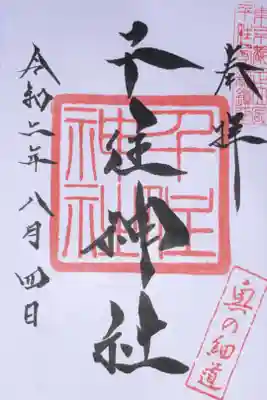 奉拝
千住神社
千住神社
令和六年八月四日
奥の細道